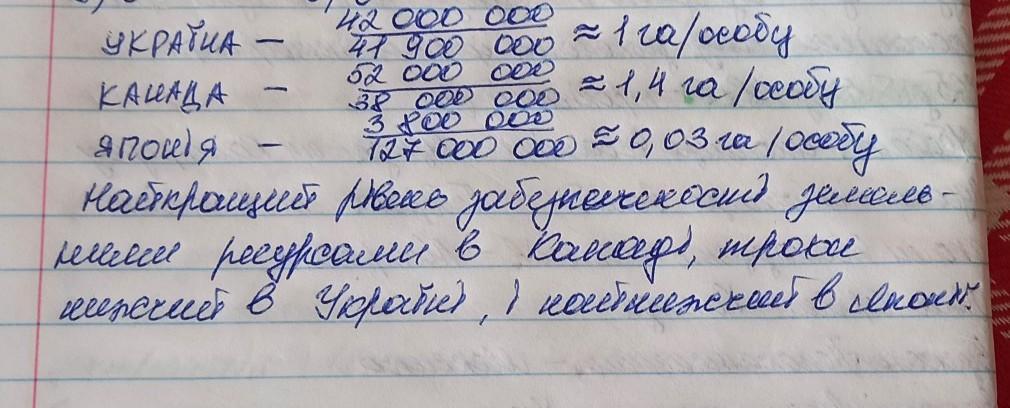 42 000 000
УКРАЇНА — 41 900 000 ≈ 1 га/особу
52 000 000
КАНАДА — 38 000 000 ≈ 1,4 га/особу
3 800 000
ЯПОНІЯ — 127 000 000 ≈ 0,03 га/особу
Найкращий рівень забезпеченості земель-
ними ресурсами в Канаді, трохи
нижчий в Україні, і найнижчий в Японії.